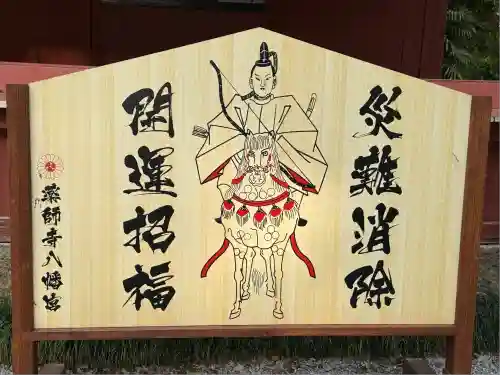 災難消除
開運招福
薬師寺八幡宮